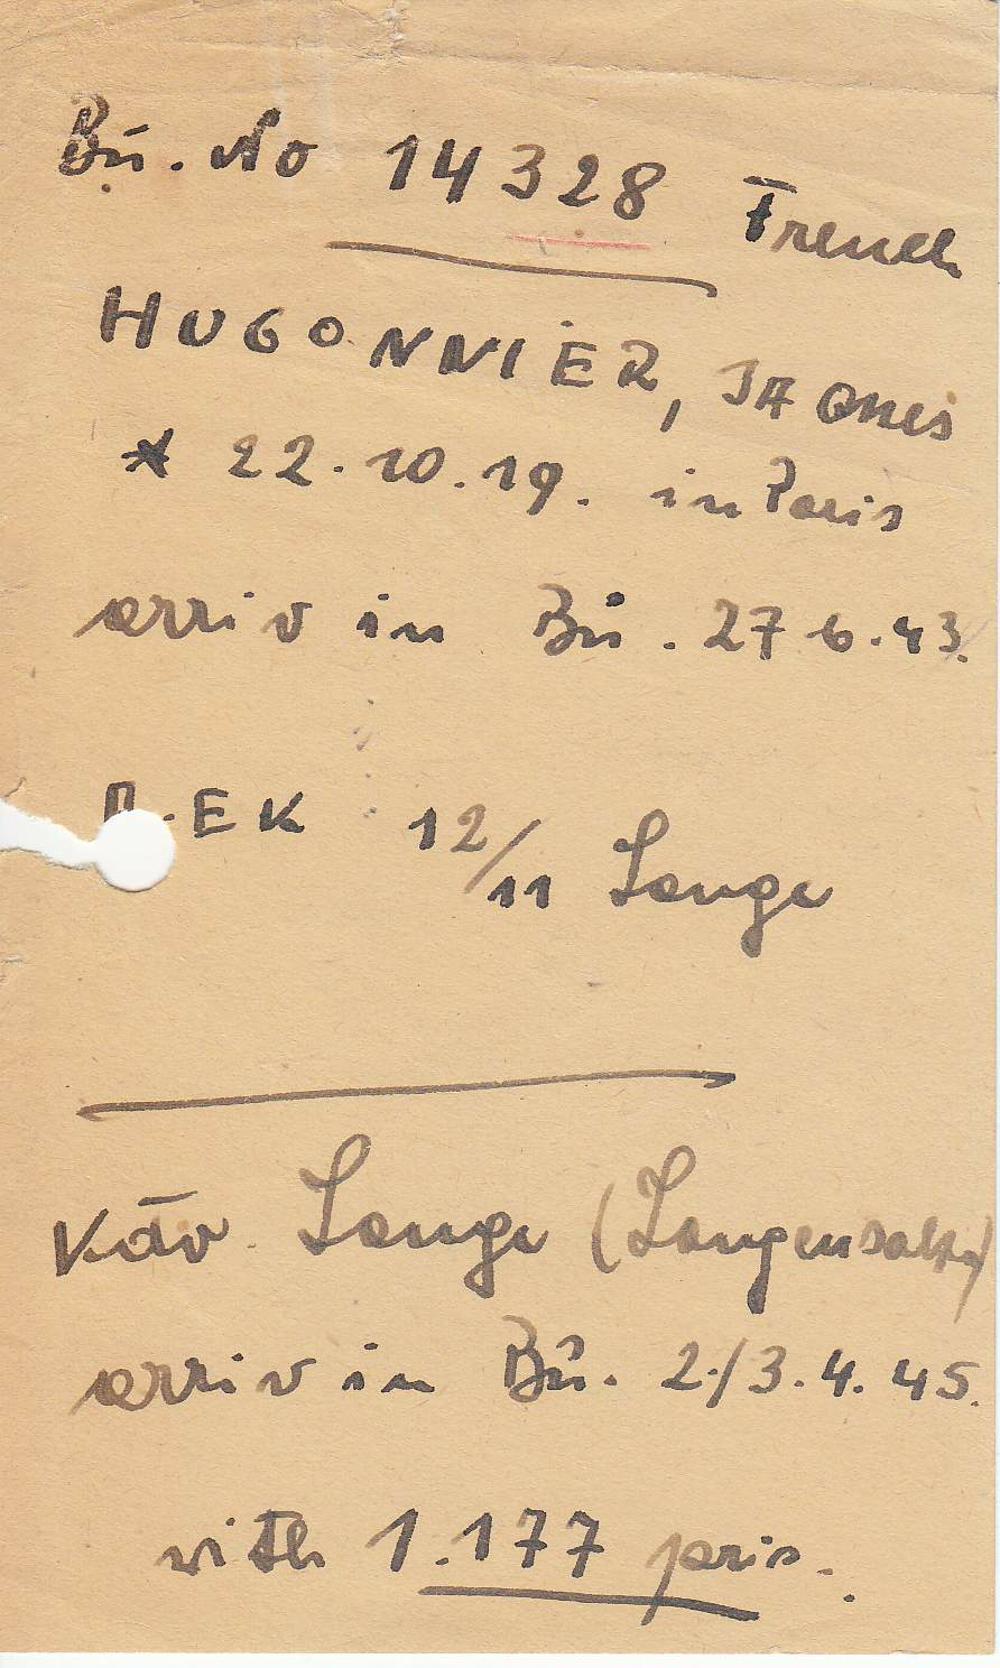 Bu. No 14328 French
HUGONNIER, JAQues
* 22.10.19. in Paris
arriv in Bu. 27 6.43.
EK 12/11 Lange
Kdo. Lange (Langensalza)
arriv in Bu. 2./3.4.45.
with 1.177 pris.